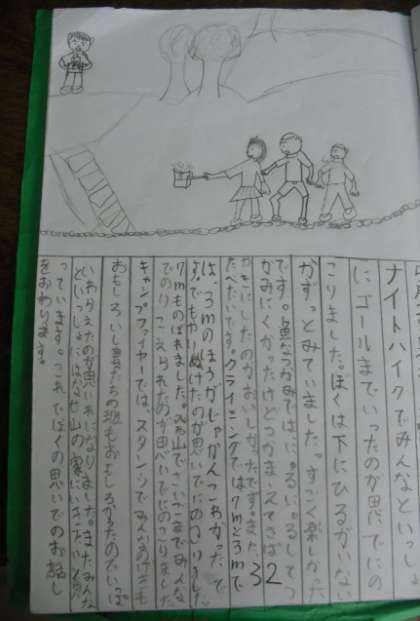 ナイトハイクでみんなといっしょ
にゴールまでいったのが思いでにの
こりました。ぼくは下にひるがいない
かずっとみていました。すごく楽しかった
です。魚つかみでは、にゅるにゅるしてつ
かみにくかったけどつかまえてさば
きにしたのがおいしかったです。また
たべたいです。クライミングでは7mと3mで
は、3mのほうがじゃかんこわかったで
す。でもやりぬけたのが思いでにのこりました
7mものぼれました。入山でていこうまでみんな
でのりこえられたのが思いでにのこりました
キャンプファイヤーでは、スタンツでみんなのげきも
おもしろいし、ぼくたちの班もおもしろかったのでいっぱ
いわらえたのが思いでになりました。またみんな
といっしょにはなせ山の家にいきたいと思
っています。これでぼくの思いでのお話し
をおわります。
32